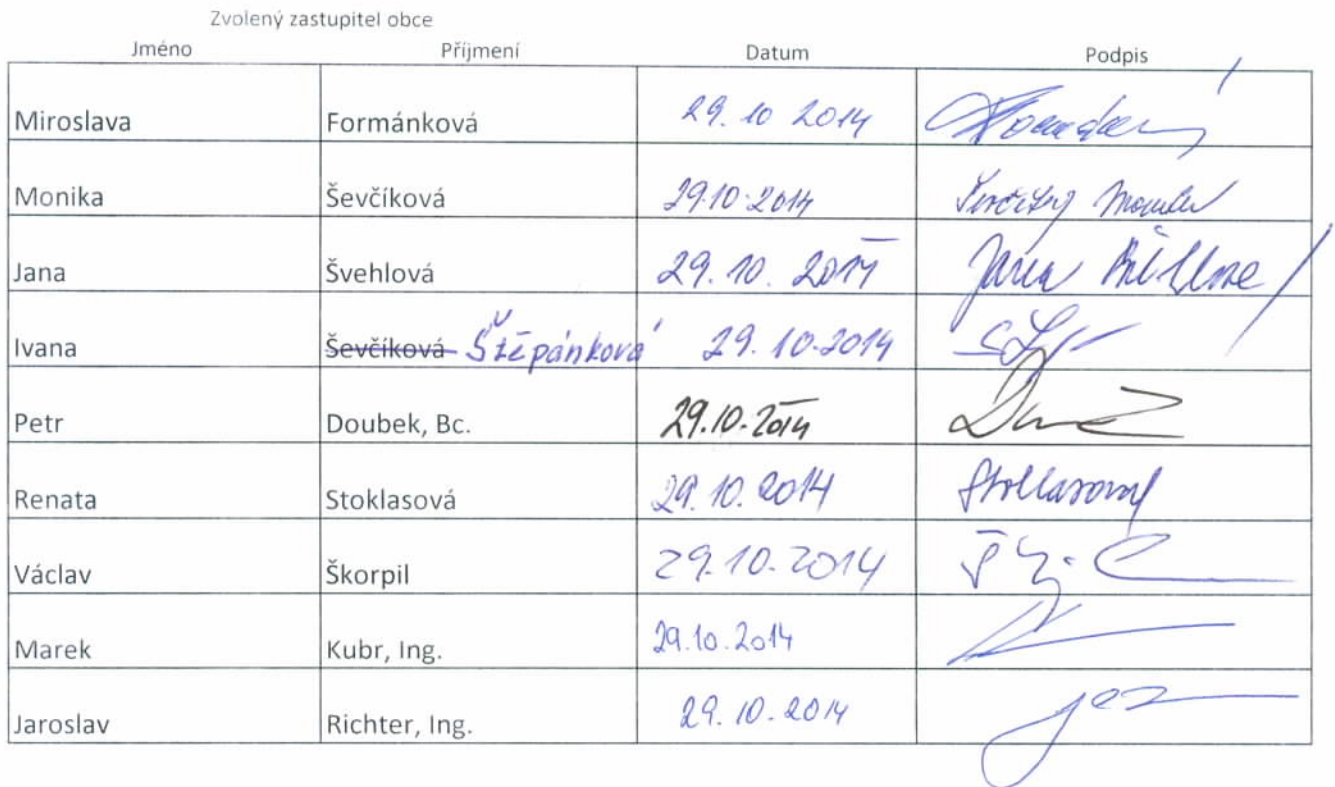 Zvolený zastupitel obce
Jméno Příjmení Datum Podpis
Miroslava Formánková 29. 10 2014
Monika Ševčíková 29.10.2014
Jana Švehlová 29. 10. 2014 Jana
Ivana Ševčíková Štěpánková 29. 10.2014
Petr Doubek, Bc. 29.10.2014
Renata Stoklasová 29. 10. 2014 Stoklasová
Václav Škorpil 29.10.2014
Marek Kubr, Ing. 29.10.2014
Jaroslav Richter, Ing. 29. 10. 2014